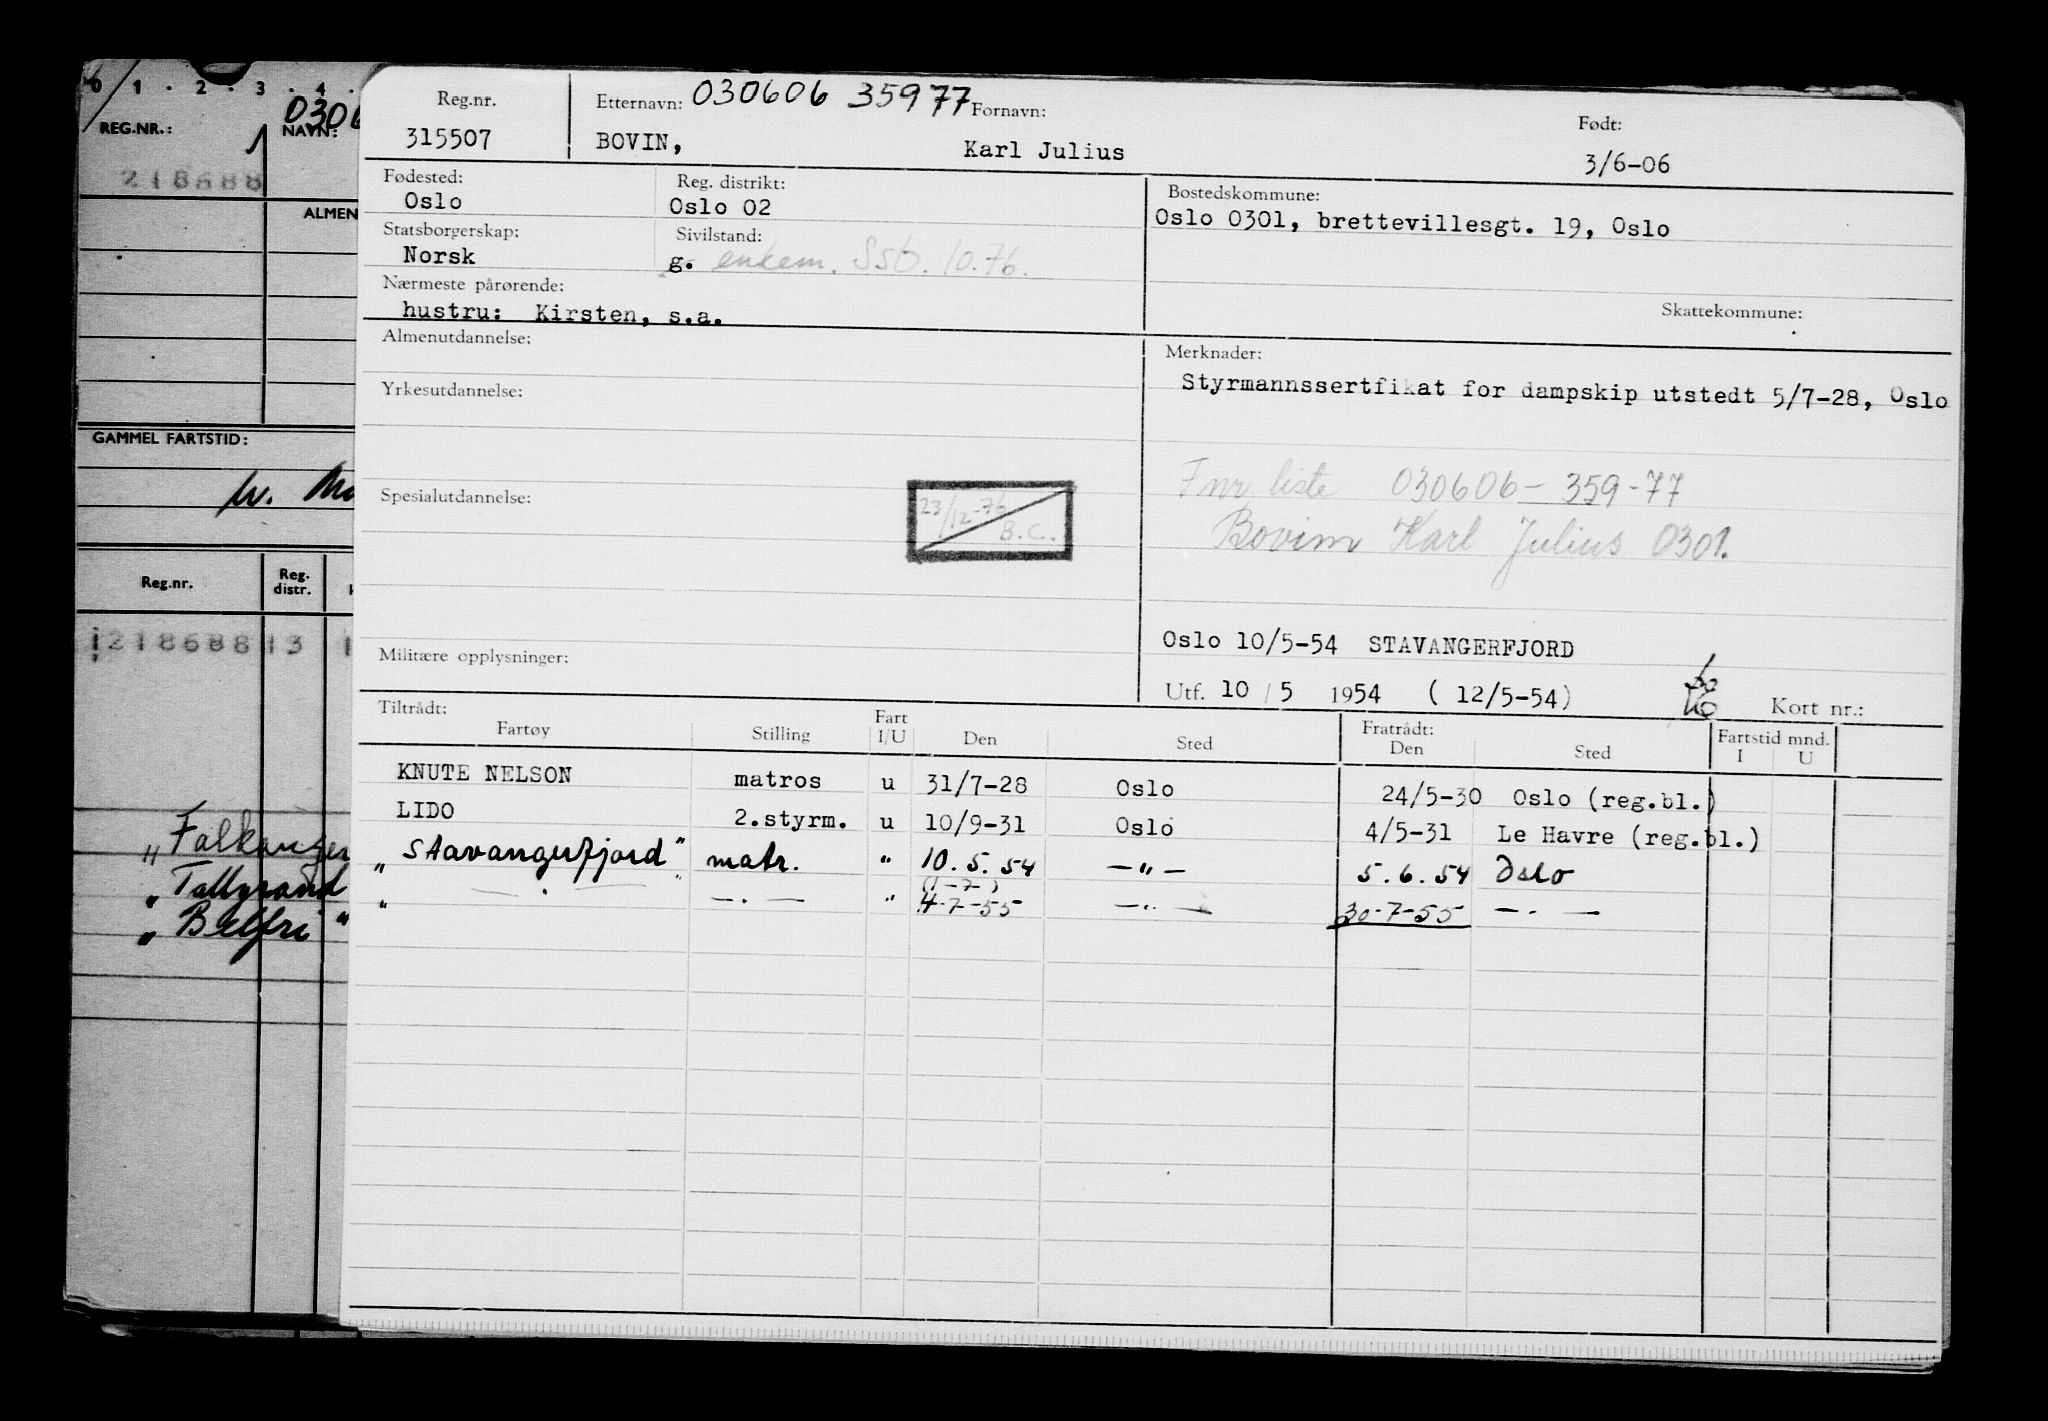 0 1 . 2 . 3 . 4 .
REG.NR.:
NAVN:
0306
218688
ALMEN
GAMMEL FARTSTID:
Reg.nr.
Reg. distr.
218688 13
"Falkanger
"Tallyrand
"Belfri"
Reg.nr.
315507
Etternavn: 030606 35977 Fornavn:
BOVIN, Karl Julius
Født:
3/6-06
Fødested:
Oslo
Reg. distrikt:
Oslo 02
Bostedskommune:
Oslo 0301, brettevillesgt. 19, Oslo
Statsborgerskap:
Norsk
Sivilstand:
g. enkem. SSb. 10.76.
Nærmeste pårørende:
hustru: Kirsten, s.a.
Skattekommune:
Almenutdannelse:
Yrkesutdannelse:
Spesialutdannelse:
23/12-76
B.C.
Militære opplysninger:
Merknader:
Styrmannssertfikat for dampskip utstedt 5/7-28, Oslo
Fnr liste 030606-359-77
Bovim Karl Julius 0301.
Oslo 10/5-54 STAVANGERFJORD
Utf. 10 / 5 1954 ( 12/5-54)
Kort nr.:
Tiltrådt:
Fartøy Stilling Fart I/U Den Sted
Fratrådt:
Den Sted
Fartstid mnd.
I U
KNUTE NELSON matros u 31/7-28 Oslo 24/5-30 Oslo (reg.bl.)
LIDO 2.styrm. u 10/9-31 Oslo 4/5-31 Le Havre (reg.bl.)
"Stavangerfjord" matr. " 10.5.54 -"- 5.6.54 Oslo
(1-7-)
" - . - - . - " 4-7-55 - " - 30-7-55 - . -